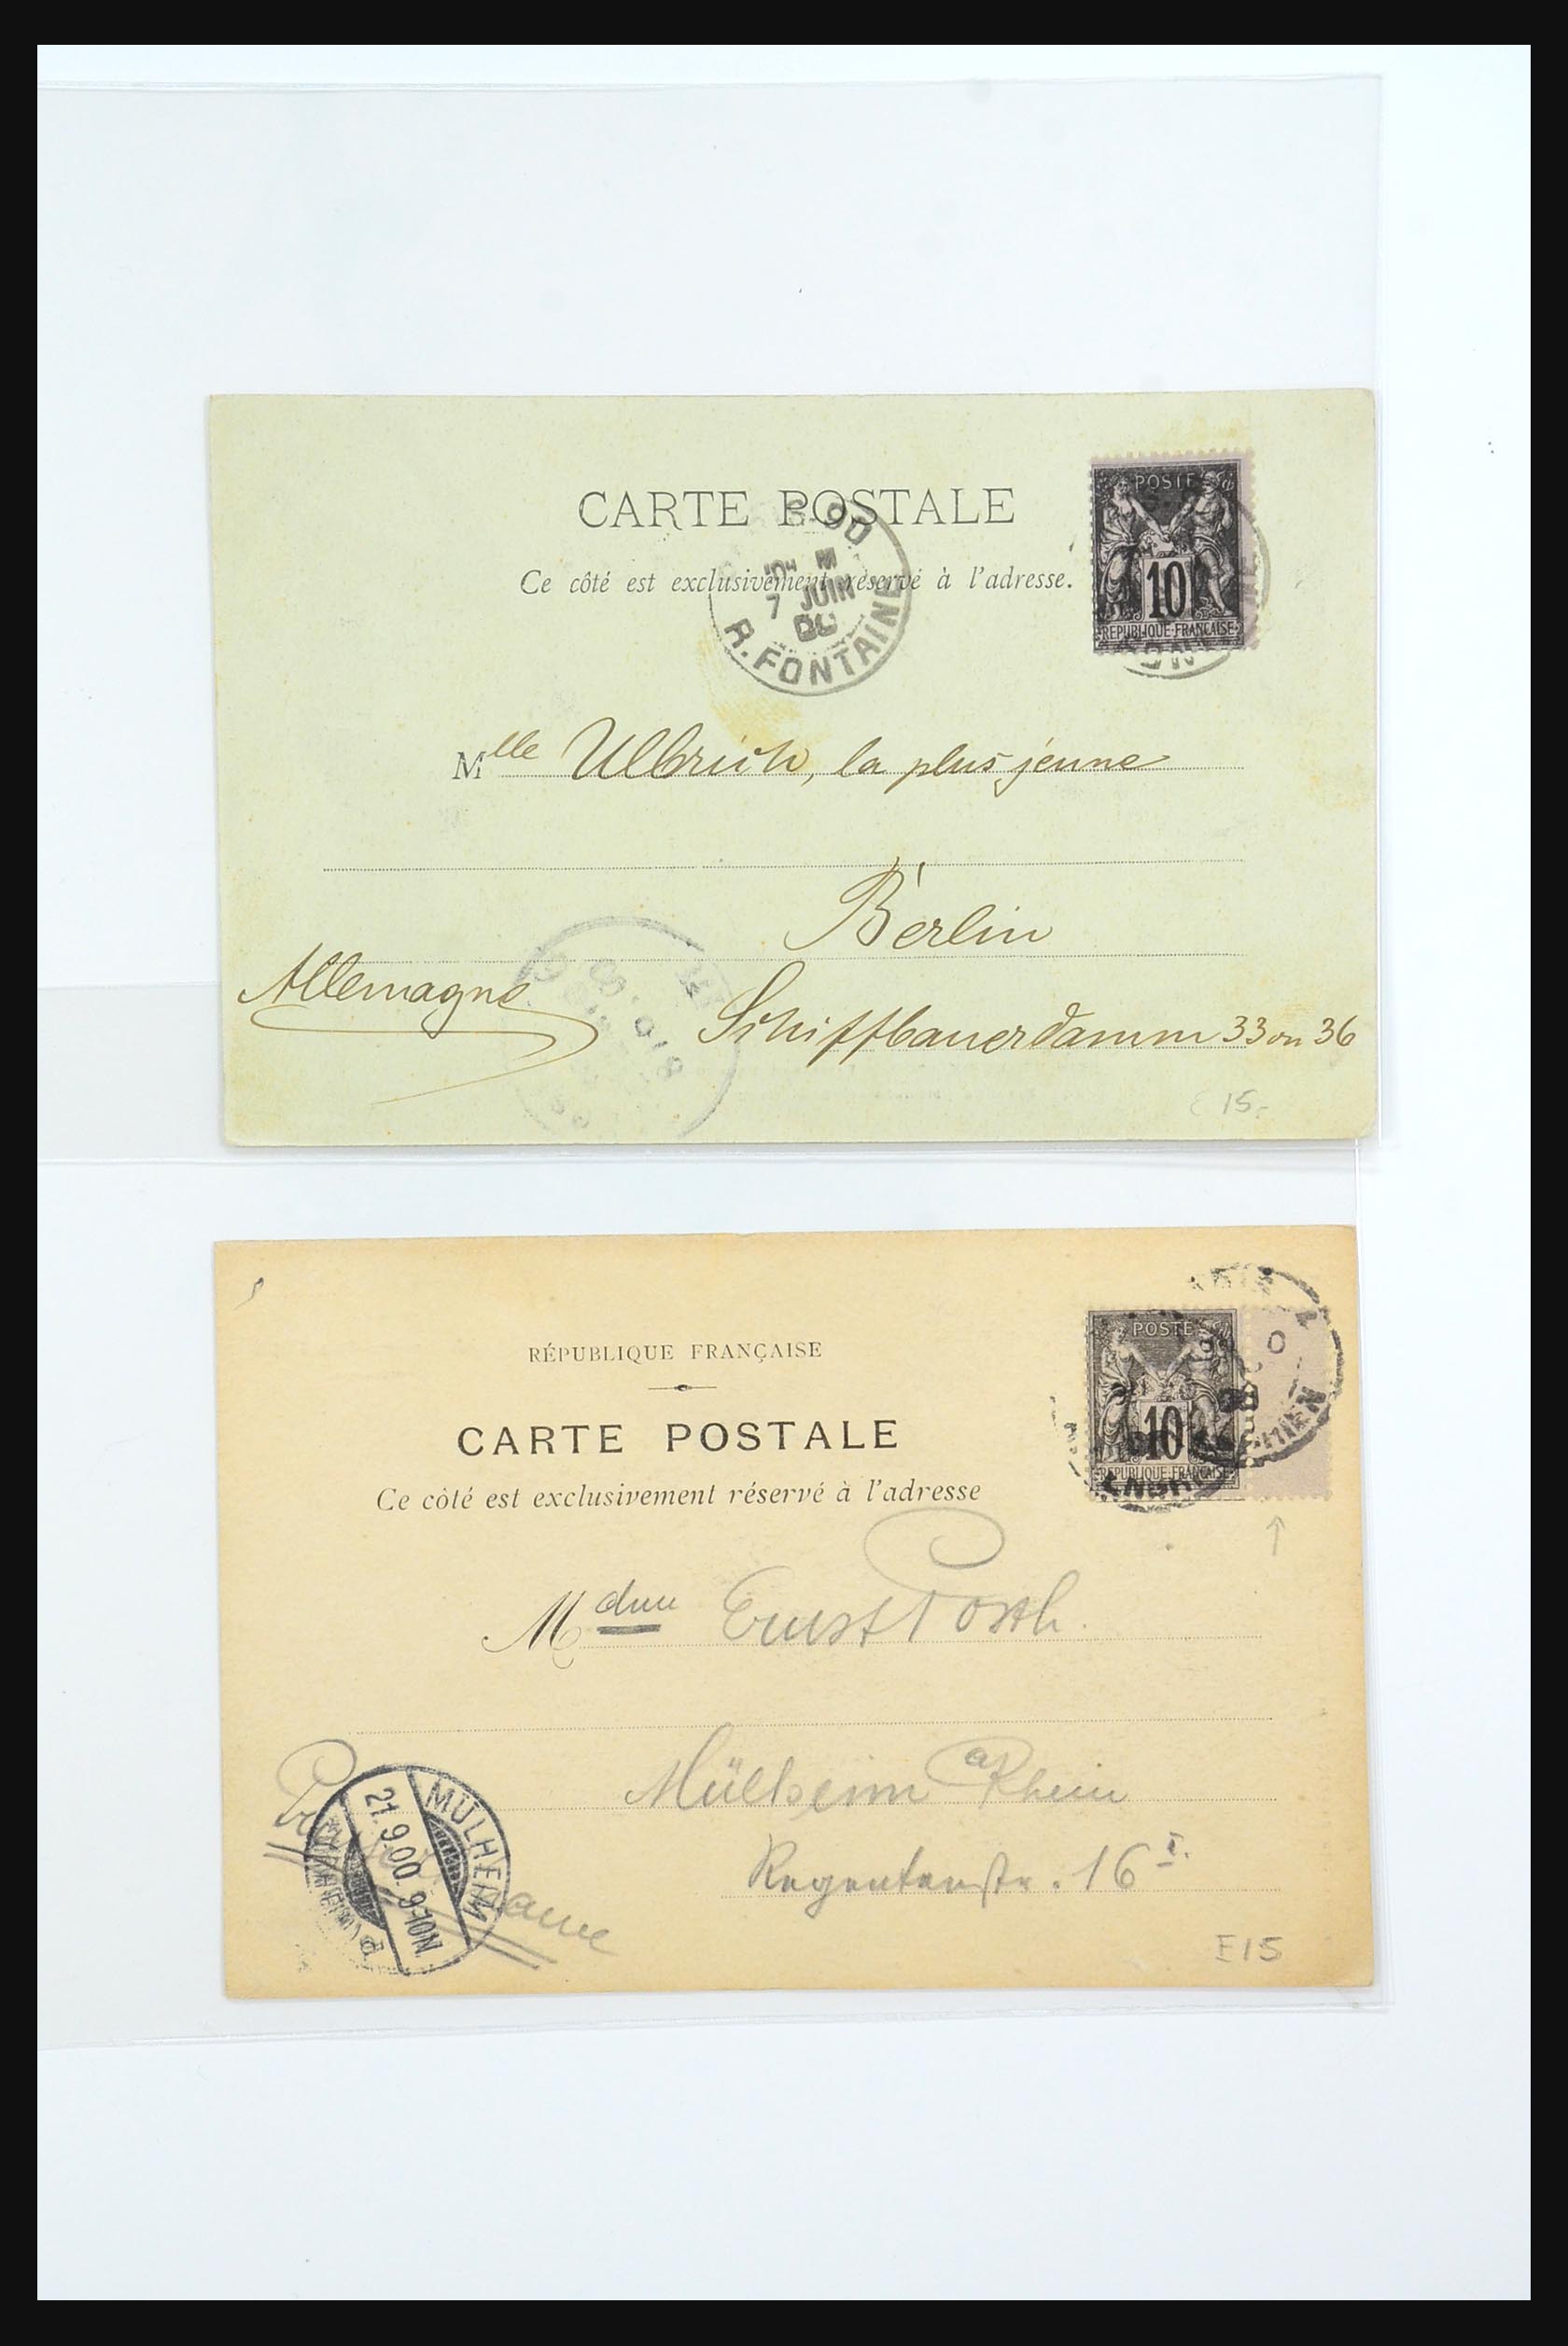 CARTE POSTALE
Ce côté est exclusivement réservé à l'adresse.
POSTE
10
REPUBLIQUE FRANÇAISE
7 JUIN
00
R. FONTAINE
Mlle Ulbrich, la plus jeune
Berlin
Allemagne
Schiffbauerdamm 33 ou 36
€ 15.-
RÉPUBLIQUE FRANÇAISE
CARTE POSTALE
Ce côté est exclusivement réservé à l'adresse
POSTE
10
REPUBLIQUE FRANÇAISE
Mdme Ernst Posth.
Mülheim a Rhein
Regentenstr. 16 I.
MÜLHEIM
21.9.00. 9-10N.
E15